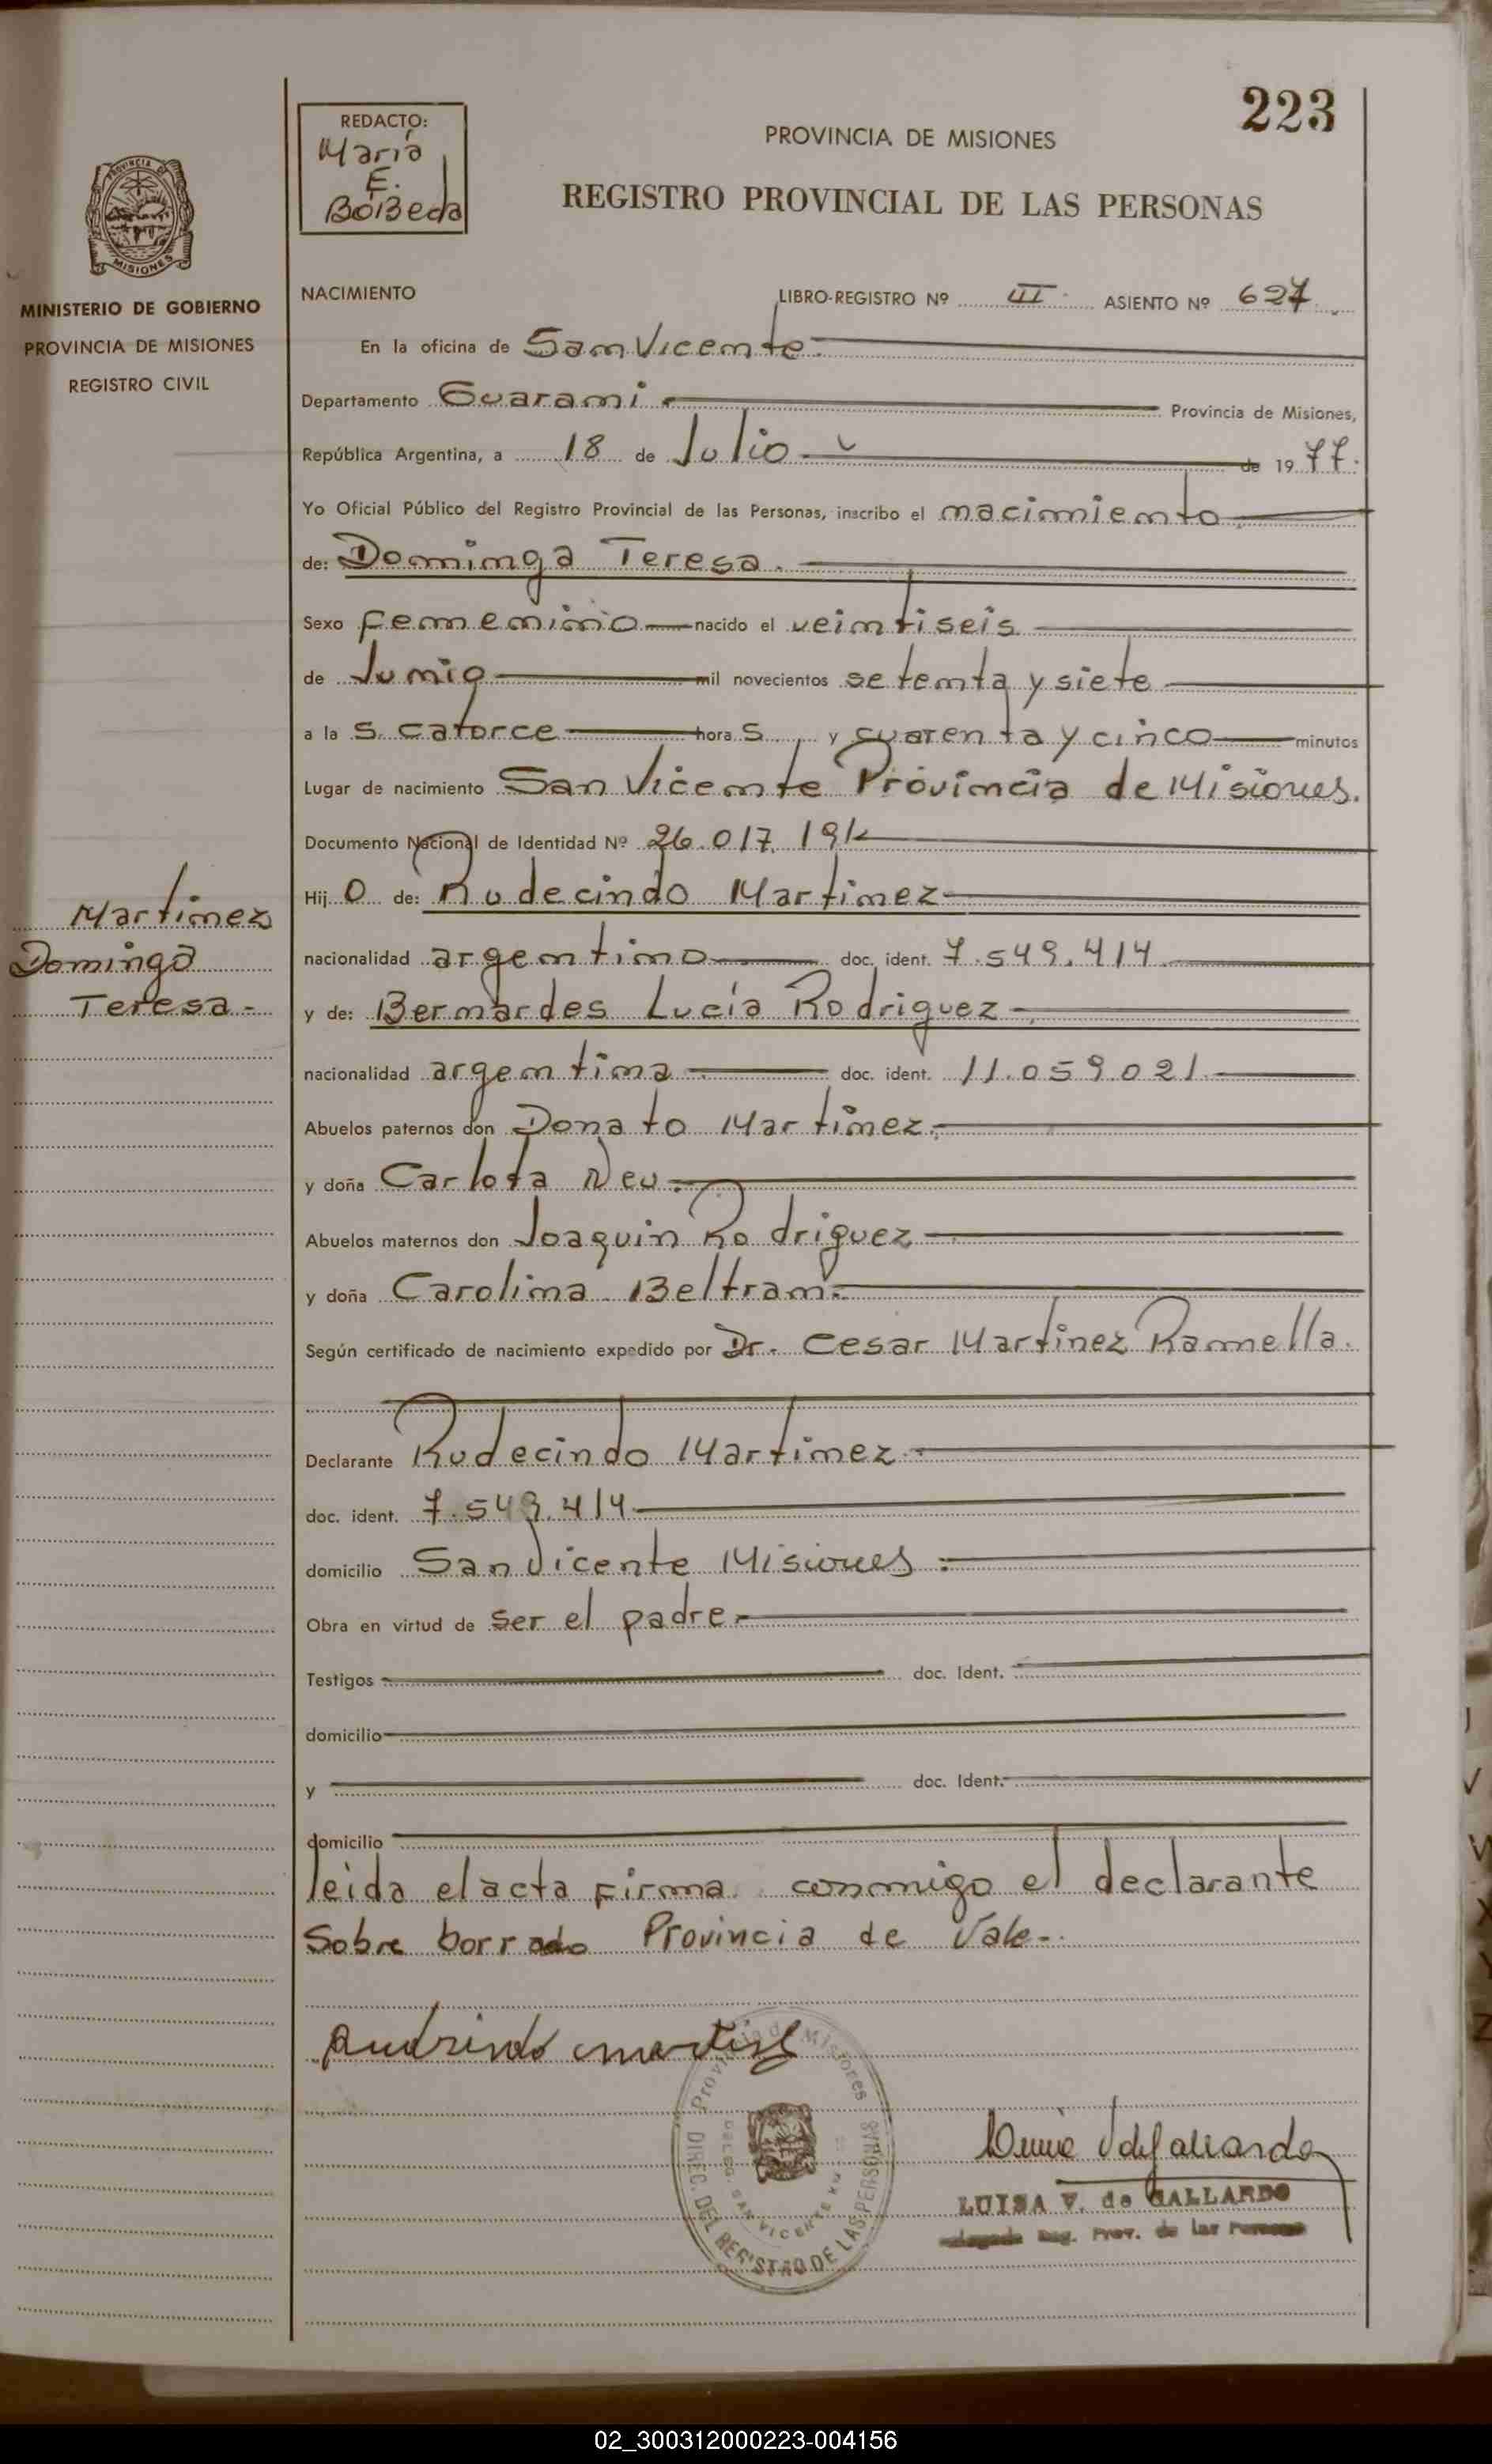 223
REDACTO:
María
E.
Boβeda
PROVINCIA DE MISIONES
REGISTRO PROVINCIAL DE LAS PERSONAS
PROVINCIA DE
MISIONES
MINISTERIO DE GOBIERNO
PROVINCIA DE MISIONES
REGISTRO CIVIL
NACIMIENTO LIBRO-REGISTRO Nº III. ASIENTO Nº 627
En la oficina de San Vicente.
Departamento Guarani. Provincia de Misiones,
República Argentina, a 18 de Julio de 1977.
Yo Oficial Público del Registro Provincial de las Personas, inscribo el nacimiento
de: Dominga Teresa.
Sexo femenino nacido el veintiseis
de Junio mil novecientos setenta y siete
a las catorce horas y cuarenta y cinco minutos
Lugar de nacimiento San Vicente Provincia de Misiones.
Documento Nacional de Identidad Nº 26.017.191
Hijo de: Rudecindo Martinez
nacionalidad argentino doc. ident. 7.549.414
y de: Bernardes Lucía Rodriguez
nacionalidad argentina doc. ident. 11.059.021.
Abuelos paternos don Donato Martinez.
y doña Carlota Neu.
Abuelos maternos don Joaquin Rodriguez
y doña Carolina Beltram.
Según certificado de nacimiento expedido por Dr. Cesar Martinez Ramella.
Declarante Rudecindo Martinez
doc. ident. 7.549.414
domicilio San Vicente Misiones
Obra en virtud de ser el padre
Testigos doc. Ident.
domicilio
y doc. Ident.
domicilio
leida el acta firma conmigo el declarante
Sobre borrado Provincia de Vale.
Martinez
Dominga
Teresa
Provincia de Misiones
DIREC. DEL REGISTRO DE LAS PERSONAS
DELEG. SAN VICENTE
LUISA V. de GALLARDO
Delegada Reg. Prov. de las Personas
02_300312000223-004156